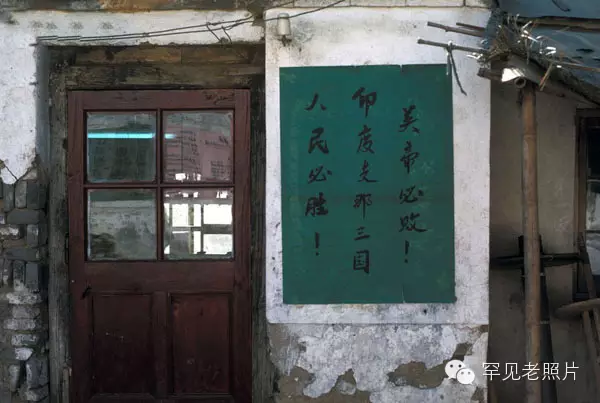 美帝必败!
印度支那三国
人民必胜!
罕见老照片